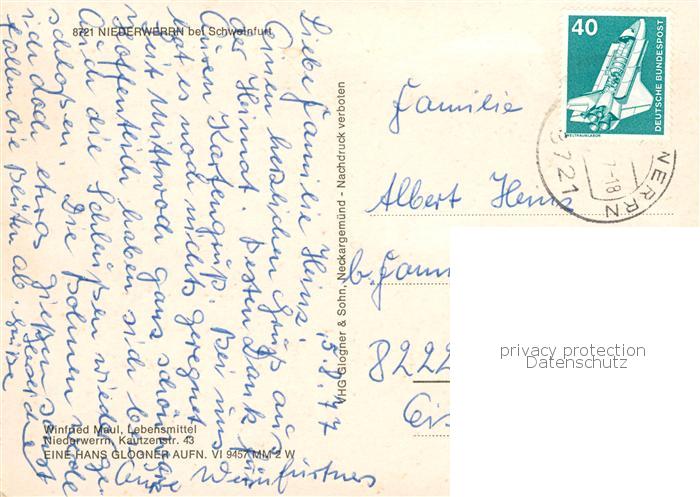 8721 NIEDERWERRN bei Schweinfurt
Liebe Familie Heins, 5.8.77
Einen herzlichen Gruß aus
der Heimat. Besten Dank für
Euren Kartengruß. Bei uns
hat es noch nichts geregnet
seit Mittwoch ganz schön
Hoffentlich haben sich bei
Euch die Schleußen wieder ge-
schloßen. Die Bohnen
sich doch etwas gießen, sonst
fallen die Blüten ab.
Grüße
Winfried Maul, Lebensmittel
Niederwerrn, Kautzenstr. 43
EINE HANS GLOGNER AUFN. VI 9457 MM 2 W
VHG Glogner & Sohn, Neckargemünd - Nachdruck verboten
40
DEUTSCHE BUNDESPOST
WELTRAUMLABOR
8721
NERRN
7-18
Familie
Albert Heins
b.
8222
privacy protection
Datenschutz